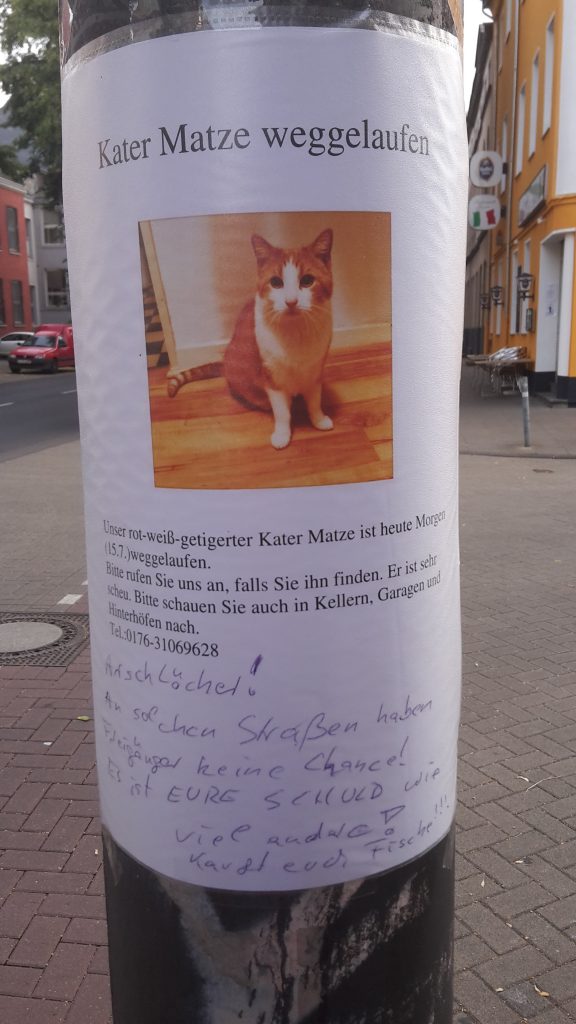 Kater Matze weggelaufen
Unser rot-weiß-getigerter Kater Matze ist heute Morgen
(15.7.)weggelaufen.
Bitte rufen Sie uns an, falls Sie ihn finden. Er ist sehr
scheu. Bitte schauen Sie auch in Kellern, Garagen und
Hinterhöfen nach.
Tel.:0176-31069628
Arschlöcher!
An solchen Straßen haben
Freigänger keine Chance!
Es ist EURE SCHULD wie
viel andre!
Kauft euch Fische!!!